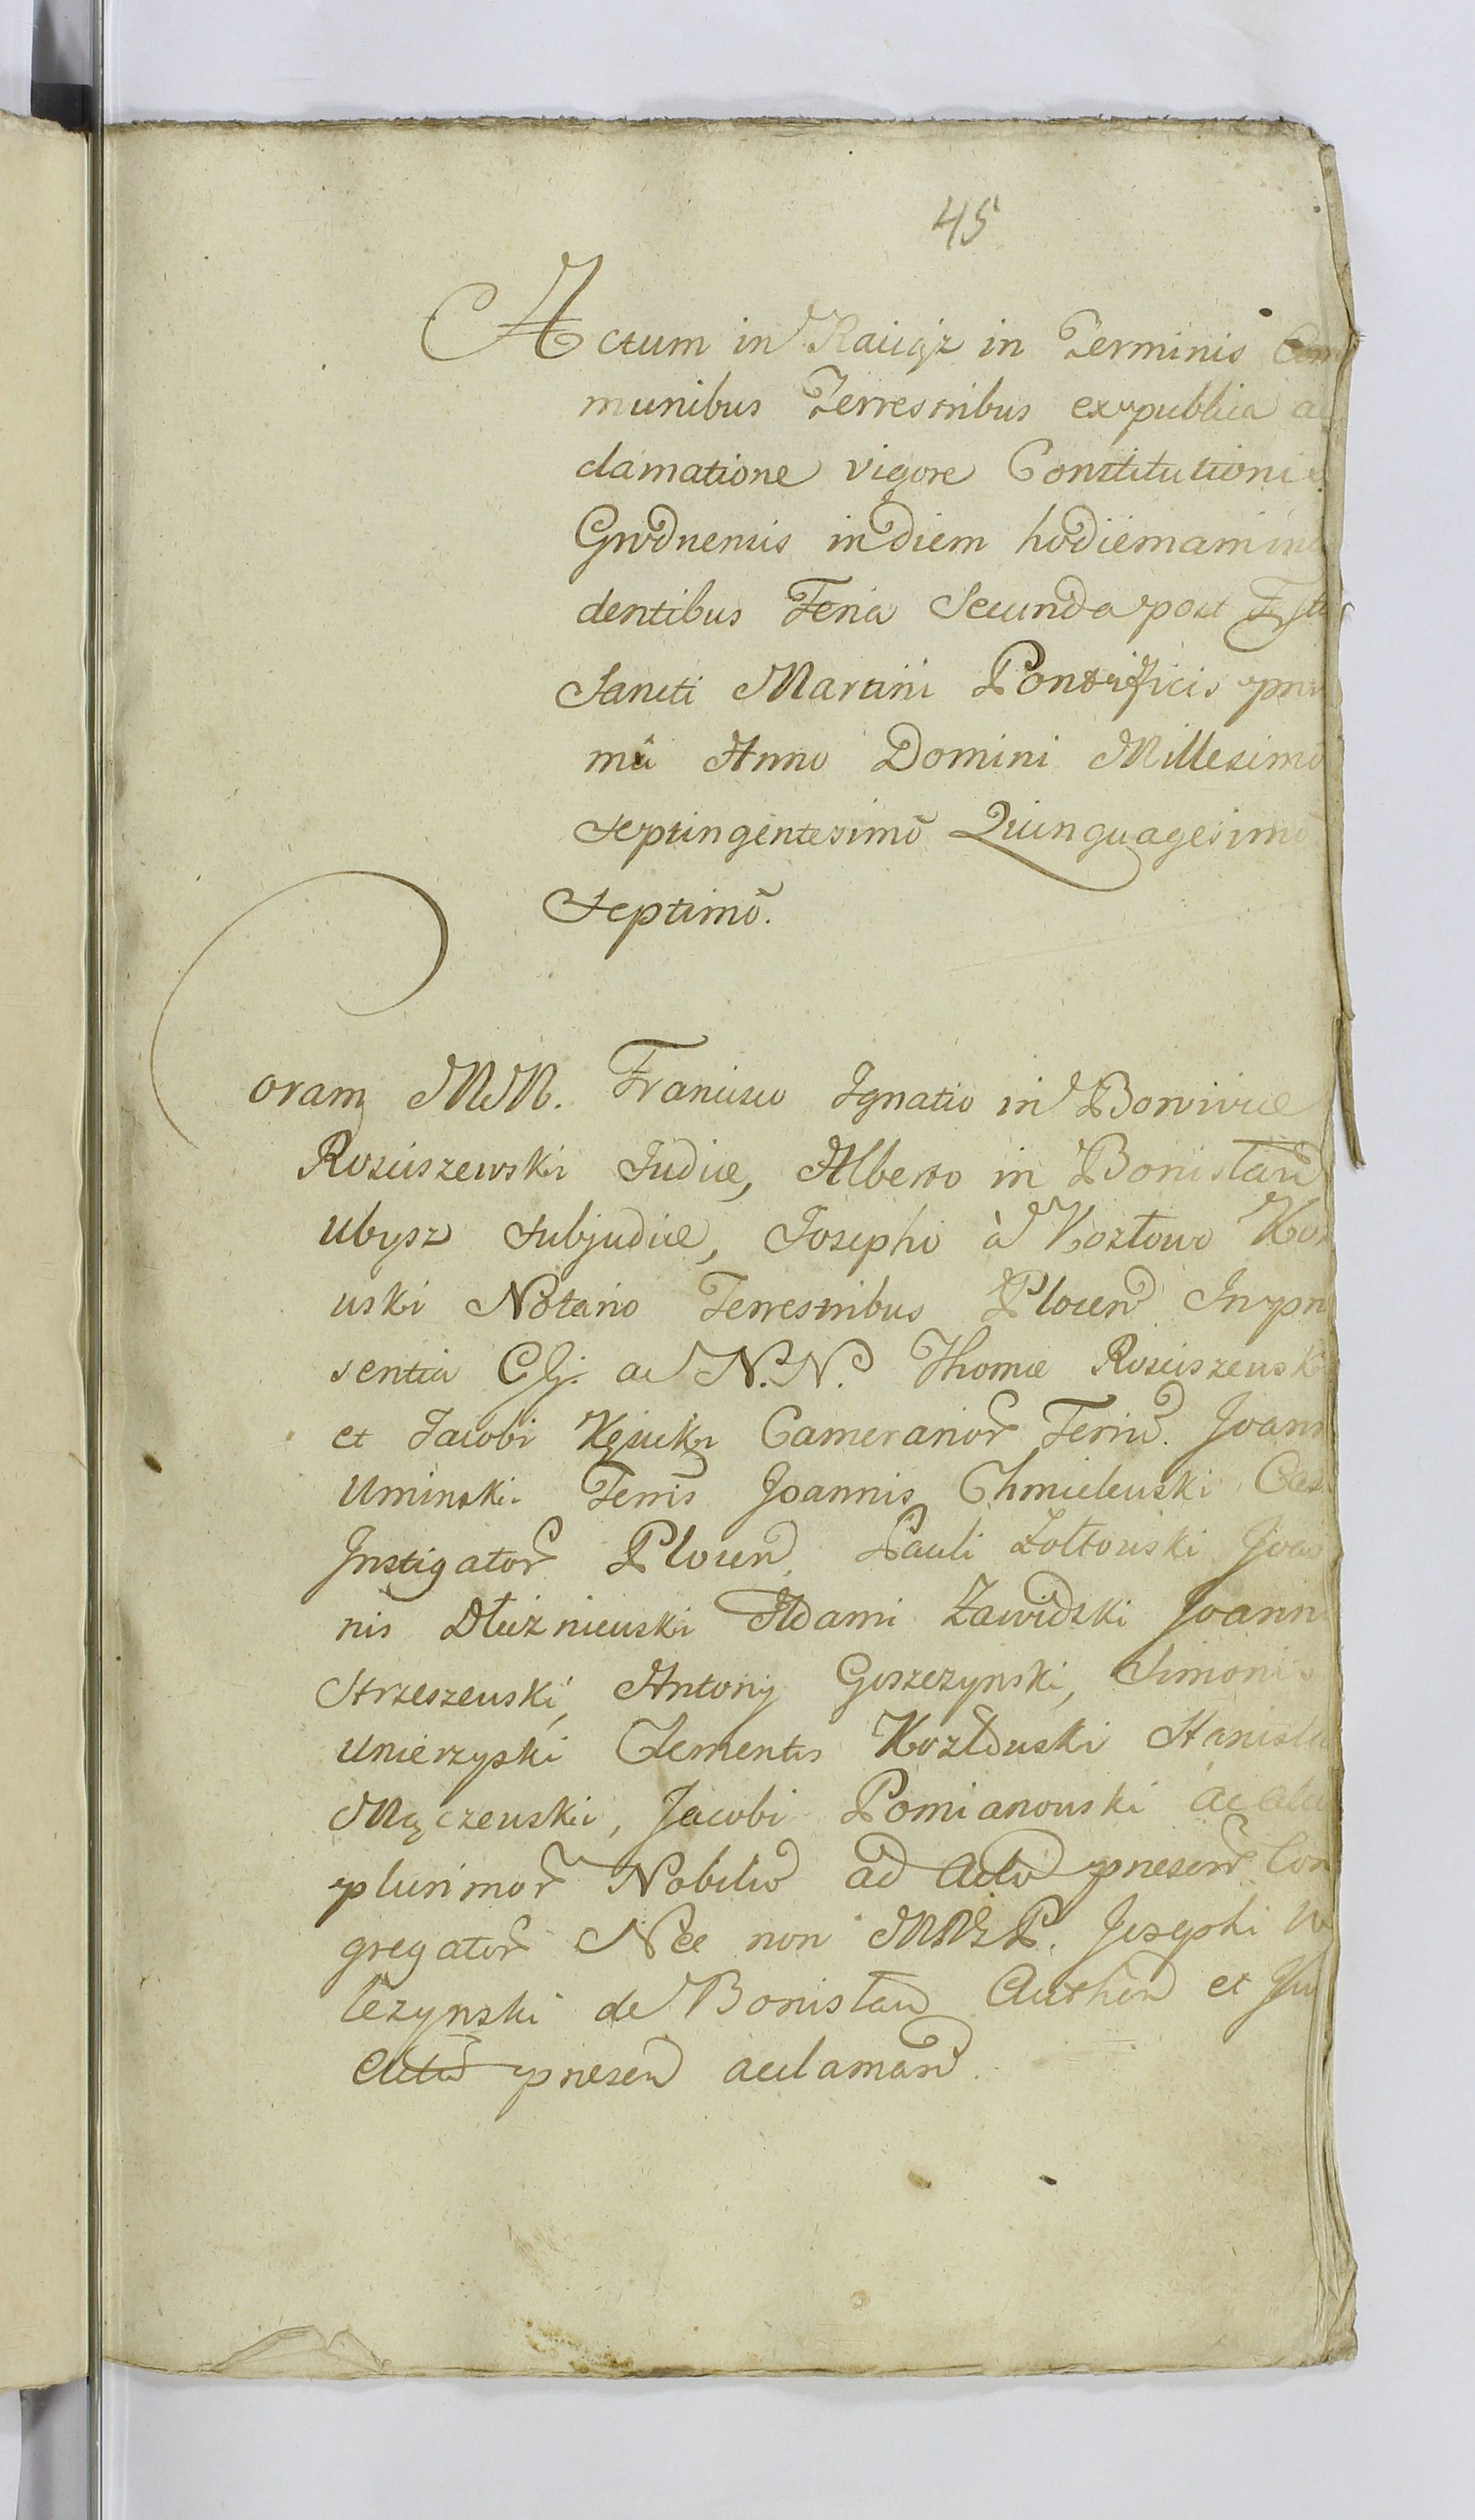 45
Actum in Raciąz in Terminis Com
munibus Terrestribus ex publica ac
clamatione vigore Constitutionis
Grodnensis in diem hodiernam inci
dentibus Feria Secunda post Festu
Sancti Martini Pontificis proxi
mâ Anno Domini Millesimo
Septingentesimō Quinquagesimō
Septimō.
Coram MM. Francisco Ignatio in Borwice
Rosciszewski Judice, Alberto in Bonisław
Ubysz Subjudice, Josepho à Kozłowo Koz
uski Notario Terrestribus Plocen In præ
sentia Gſj. ac N.N. Thomæ Rosciszewski
et Jacobi Kęsicki Camerarior Terrū. Joann
Uminski Terris Joannis Chmielewski Cas
Instigator Plocen, Pauli Zołtowski Joan
nis Dłużniewski Adami Zawidzki Joann
Strzeszewski, Antonij Goszczynski, Simonis
Unierzyski Clementis Kozłowski Stanisla
Mączewski, Jacobi Pomianowski ac alio
plurimor Nobiliū ad Actū præsen Con
gregator Nec non MM. P. Josephi
lczynski de Bonisław Authen et
Actū præsen acclaman.